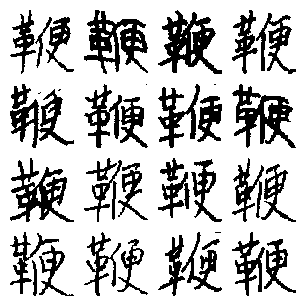 鞭鞭鞭鞭
鞭鞭鞭鞭
鞭鞭鞭鞭
鞭鞭鞭鞭